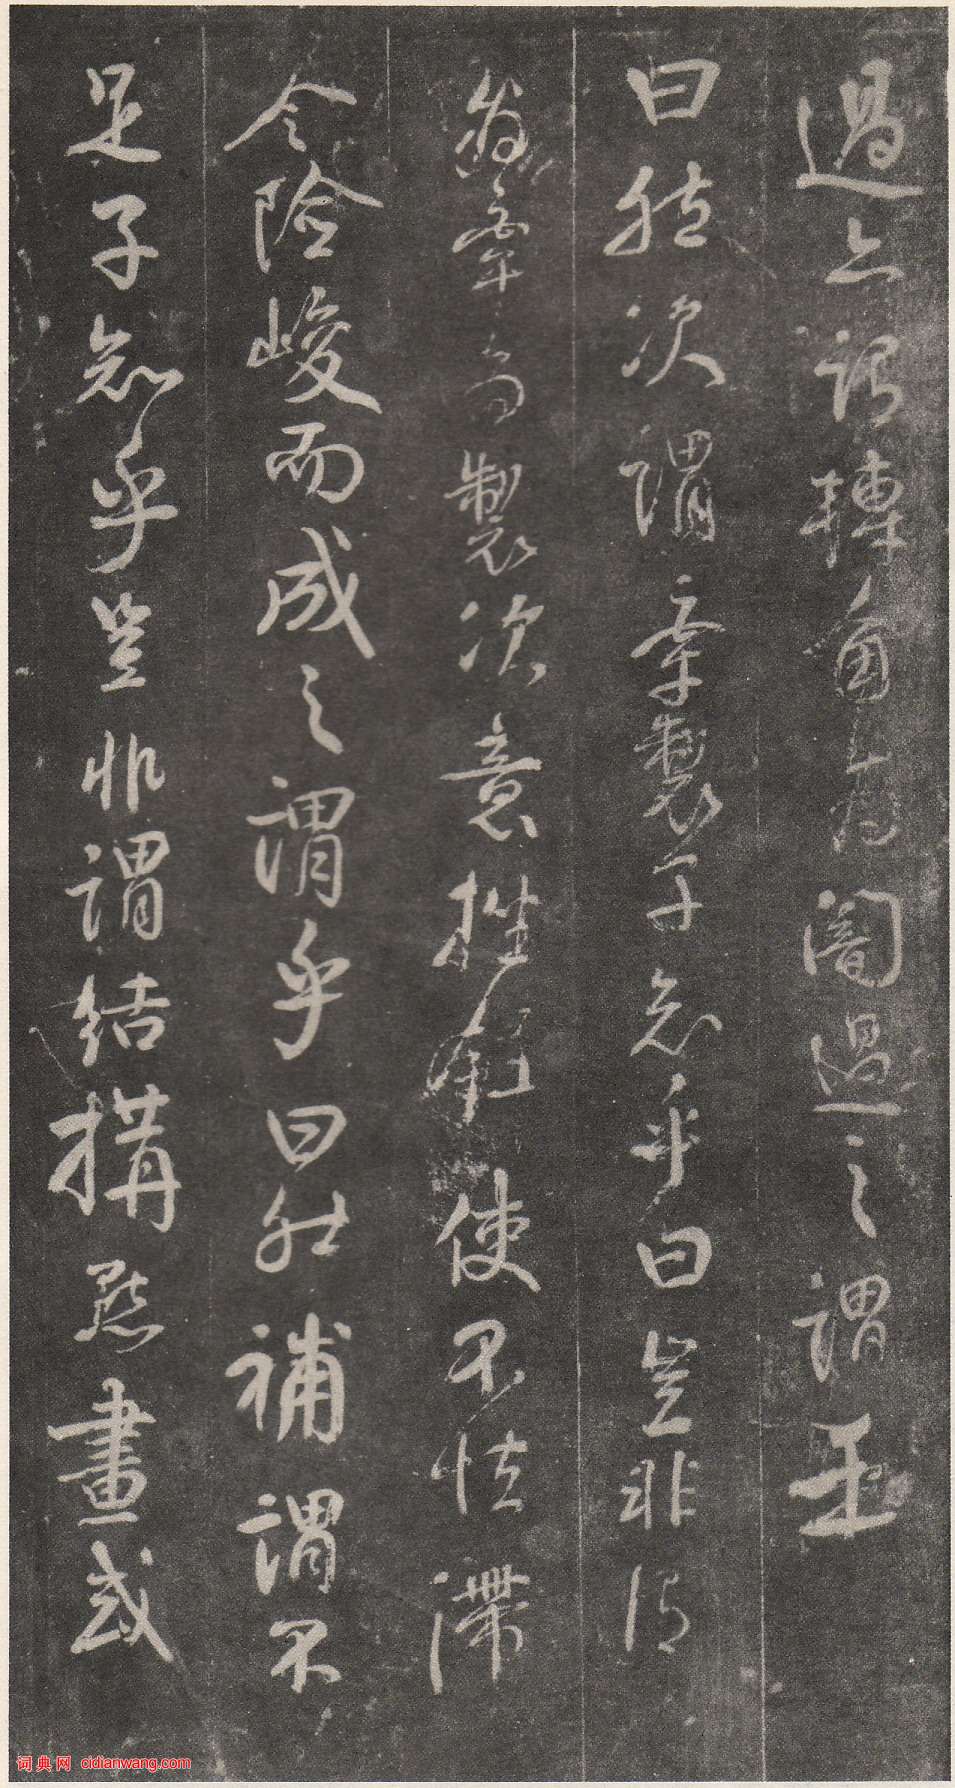 過之謂轉角為闇過之謂乎
曰然次謂牽製子知乎曰豈非謂
為牽為製次意挫鋒使不怯滯
令險峻而成之謂乎曰然補謂不
足子知乎豈非謂結構點畫或
词典网 cidianwang.com